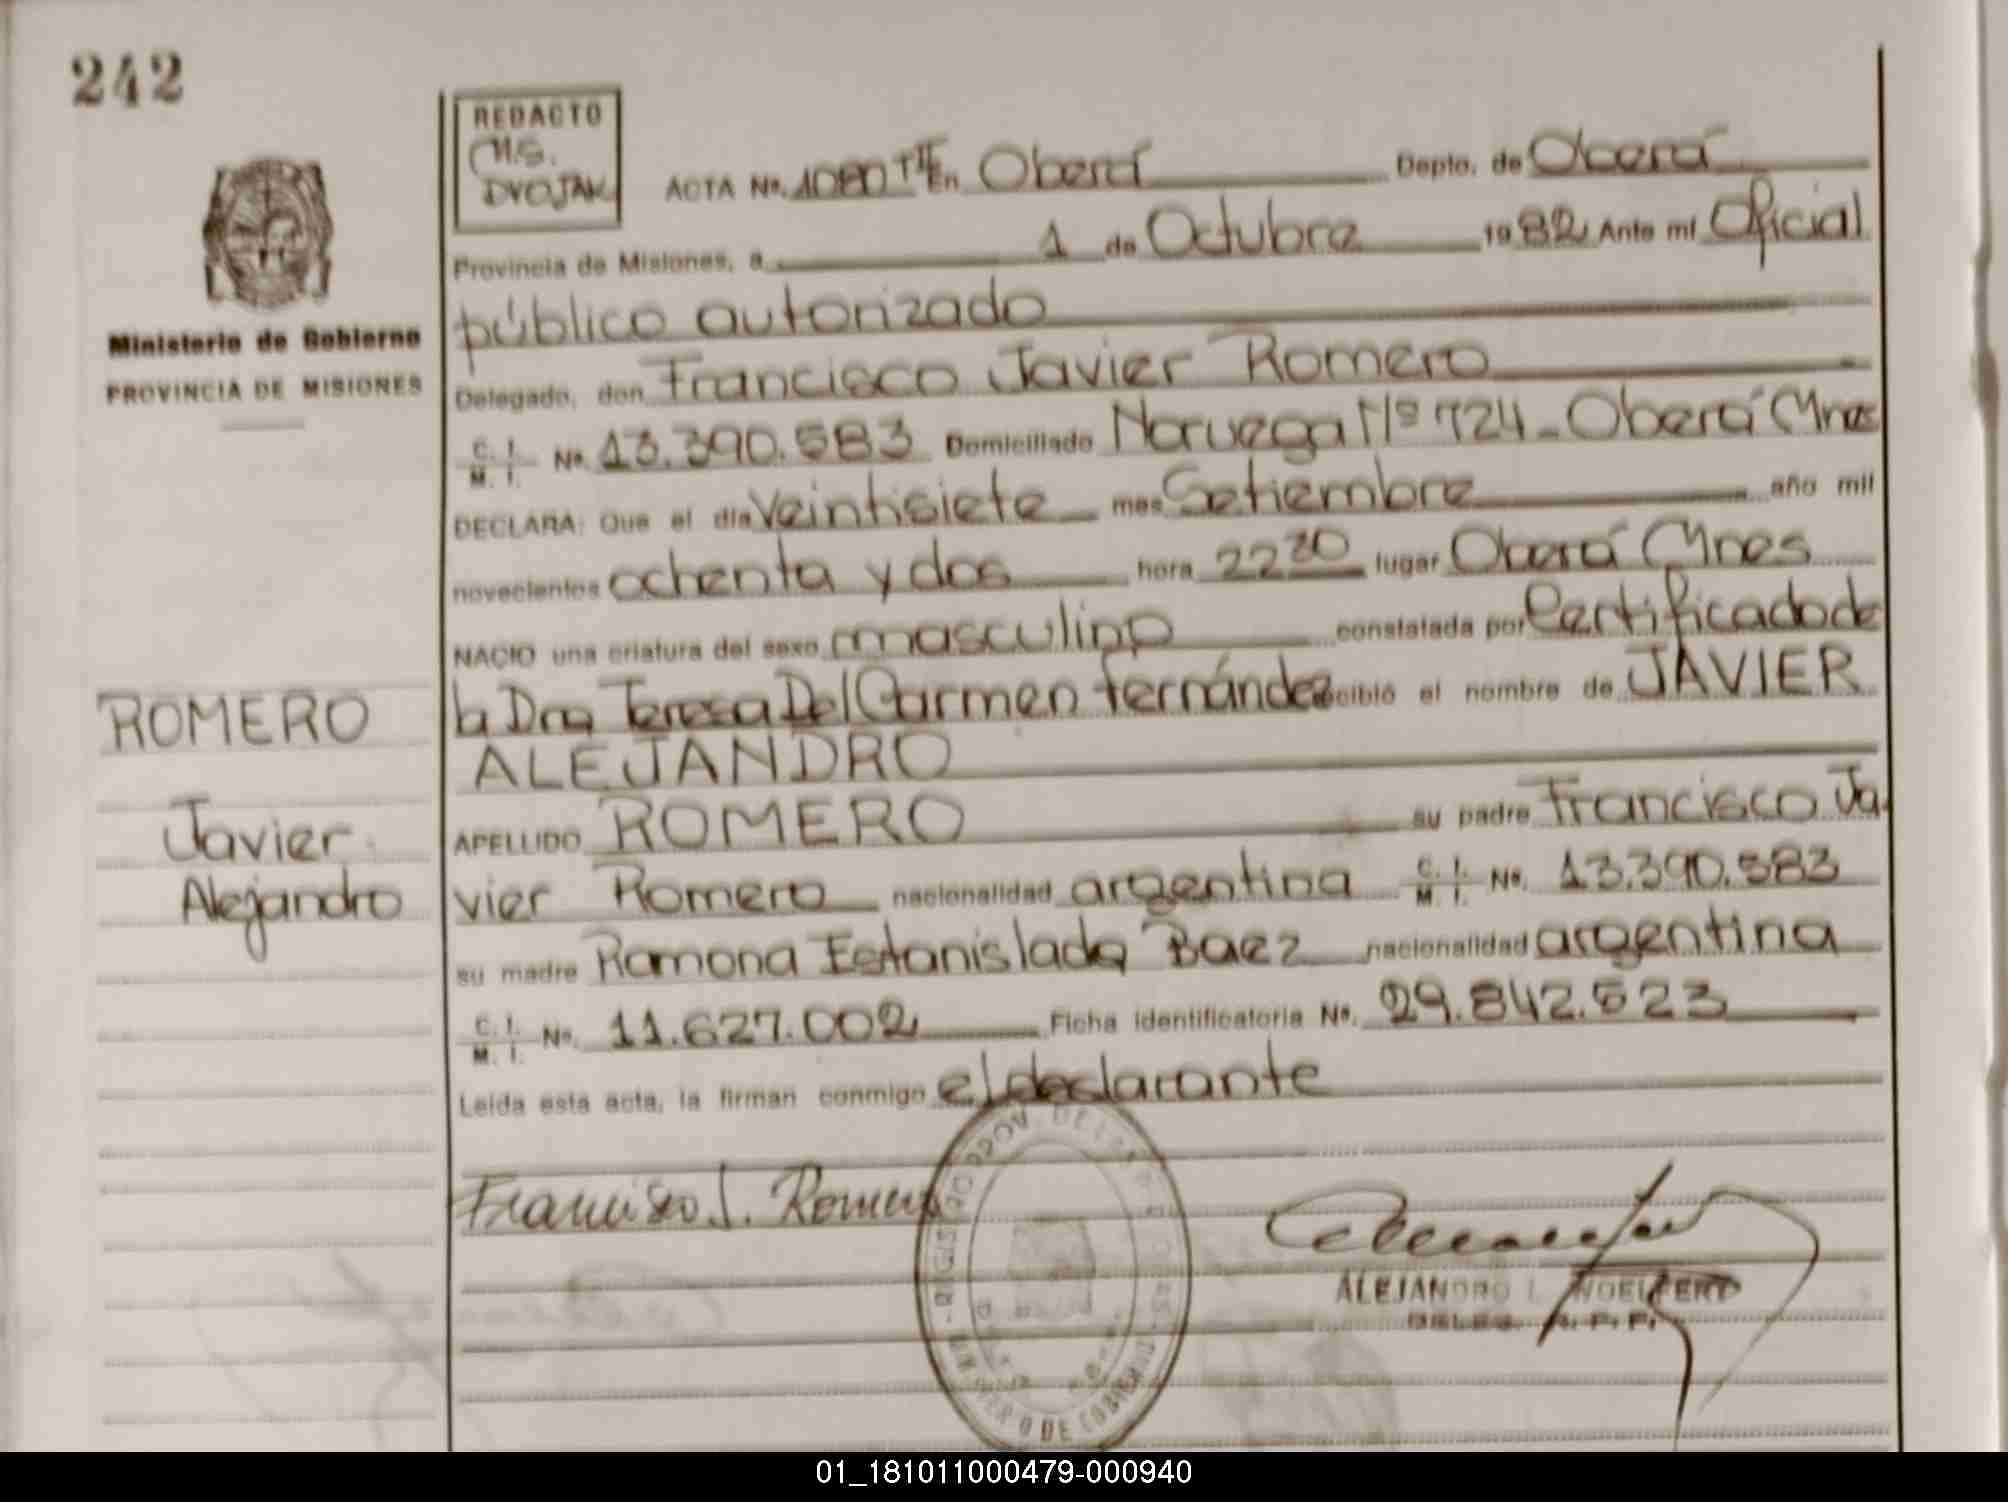 242
REDACTO
M.S.
DVOJAK
ACTA Nº 1080 TII En Oberá Depto. de Oberá
Provincia de Misiones, a 1 de Octubre 1982 Ante mí Oficial
público autorizado
Ministerio de Gobierno
PROVINCIA DE MISIONES
Delegado, don Francisco Javier Romero
C. I. M. I. Nº 13.390.583 Domiciliado Noruega Nº 724 - Oberá Mnes
DECLARA: Que el día Veintisiete mes Setiembre año mil
novecientos ochenta y dos hora 22 30 lugar Oberá Mnes
NACIO una criatura del sexo masculino constatada por Certificado de
la Dra Teresa Del Carmen Fernández recibió el nombre de JAVIER
ALEJANDRO
ROMERO
Javier
Alejandro
APELLIDO ROMERO su padre Francisco Ja-
vier Romero nacionalidad argentina C. I. M. I. Nº. 13.390.583
su madre Ramona Estanislada Baez nacionalidad argentina
C. I. M. I. Nº. 11.627.002 Ficha identificatoria Nº. 29.842.523
Leída esta acta, la firman conmigo el declarante
Francisco J. Romero
REGISTRO PROV. DE LAS
DE GOBIERNO
ALEJANDRO
DELEG. R. P. P.
01_181011000479-000940